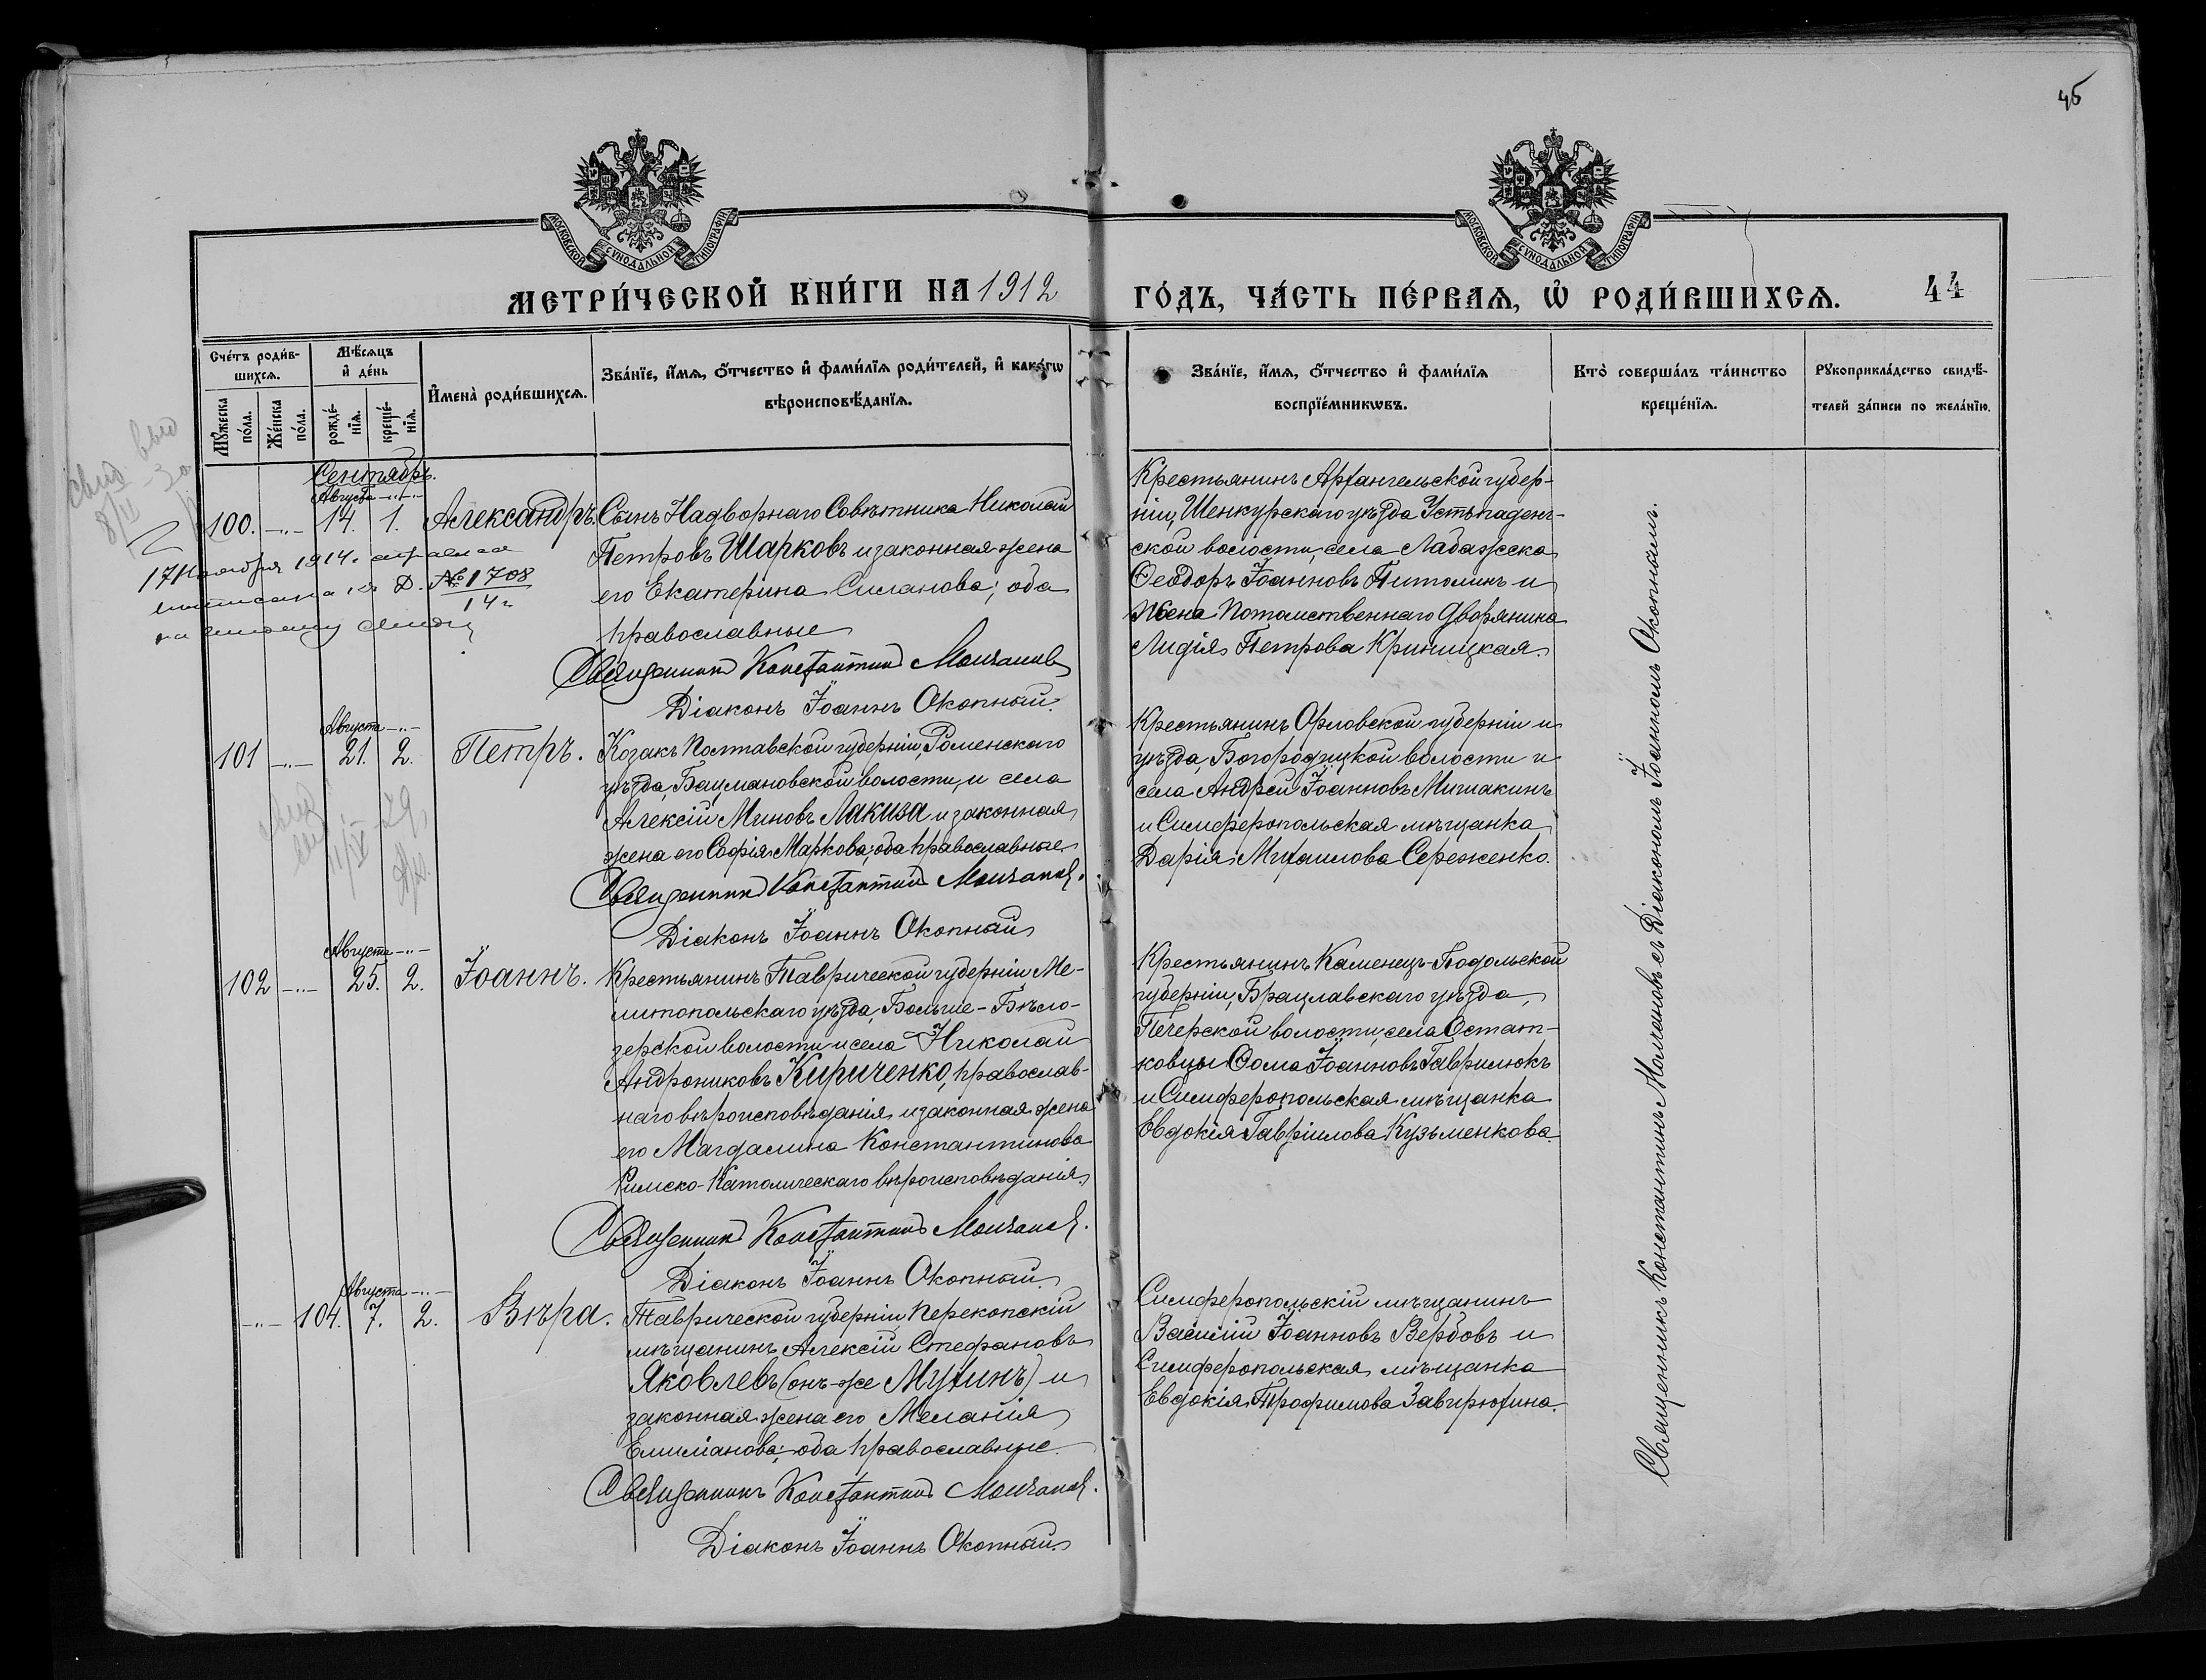 45
МОСКОВСКОЙ СѴНОДАЛЬНОЙ ТИПОГРАФІИ
МОСКОВСКОЙ СѴНОДАЛЬНОЙ ТИПОГРАФІИ
МЕТРИ́ЧЕСКОЙ КНИ́ГИ НА 1912
ГО́ДЪ, ЧА́СТЬ ПЕ́РВАѦ, Ѡ҆ РОДИ́ВШИХСѦ.
44
Сче́тъ роди́в-
шихсѧ.
Мꙋ́жеска
по́ла.
Же́нска
по́ла.
Мѣ́сѧцъ
и҆ де́нь
рожде́-
нїѧ.
креще́-
нїѧ.
И҆мена̀ роди́вшихсѧ.
Зва́нїе, и҆́мѧ, ѻ҆́тчество и҆ фами́лїѧ роди́телей, и҆ како́гѡ
вѣроисповѣ́данїѧ.
Зва́нїе, и҆́мѧ, ѻ҆́тчество и҆ фами́лїѧ
воспрїе́мникѡвъ.
Кто̀ соверша́лъ та́инство
креще́нїѧ.
Рꙋкоприкла́дство свидѣ́-
телей за́писи по жела́нїю.
Сентябрь.
Августа -"-
100. -"- 14. 1. Александръ.
Сынъ Надворнаго Совѣтника Николай
Петровъ Шарковъ и законная жена
его Екатерина Силанова; оба
православные
Священникъ Константинъ Молчановъ
Діаконъ Іоаннъ Окопный.
17 Ноября 1914.
Д. № 1708
14 г
Крестьянинъ Архангельской губер-
ніи, Шенкурскаго уѣзда Устьпаденг-
ской волости, села Лабажска
Ѳеодоръ Іоанновъ Питолинъ и
Жена Потомственнаго Дворянина
Лидія Петрова Криницкая.
Августа -"-
101 -"- 21. 2. Петръ.
Козакъ Полтавской губерніи, Роменскаго
уѣзда, Бацмановской волости, и села
Алексій Миновъ Лакиза и законная
жена его Софія Маркова; оба православные.
Священникъ Константинъ Молчановъ.
Діаконъ Іоаннъ Окопный
Крестьянинъ Орловской губерніи и
уѣзда, Богородицкой волости и
села Андрей Іоанновъ Мишакинъ
и Симферопольская мѣщанка
Дарія Михаилова Сереженко.
Августа -"-
102 -"- 25. 2. Іоаннъ.
Крестьянинъ Таврической губерніи, Ме-
литопольскаго уѣзда, Больше-Бѣло-
зерской волости и села Николай
Андрониковъ Кириченко, православ-
наго вѣроисповѣданія и законная жена
его Магдалина Константинова
Римско-Католическаго вѣроисповѣданія.
Священникъ Константинъ Молчановъ.
Діаконъ Іоаннъ Окопный.
Крестьянинъ Каменецъ-Подольской
губерніи, Брацлавскаго уѣзда,
Печерской волости, села Остап-
ковцы Ѳома Іоанновъ Гаврилюкъ
и Симферопольская мѣщанка
Евдокія Гавріилова Кузьменкова.
Августа -"-
-"- 104. 7. 2. Вѣра.
Таврической губерніи, Перекопскій
мѣщанинъ Алексій Стефановъ
Яковлевъ (онъ-же Мухинъ) и
законная жена его Меланія
Емиліанова; оба православные.
Священникъ Константинъ Молчановъ.
Діаконъ Іоаннъ Окопный.
Симферопольскій мѣщанинъ
Василій Іоанновъ Вербовъ и
Симферопольская мѣщанка
Евдокія Трофимова Завирюхина.
Священникъ Константинъ Молчановъ съ Діакономъ Іоанномъ Окопнымъ.